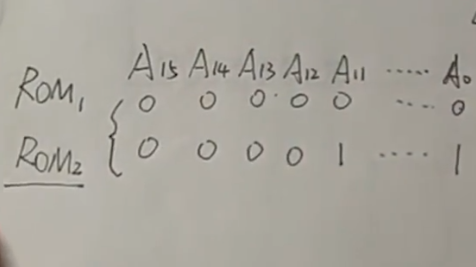 A₁₅ A₁₄ A₁₃ A₁₂ A₁₁ ····· A₀
ROM₁ 0 0 0 0 0 ···· 0
ROM₂ 0 0 0 0 1 ···· 1